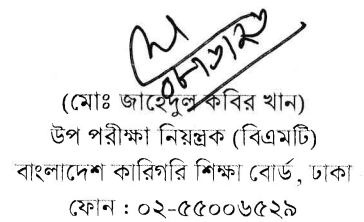 (মোঃ জাহেদুল কবির খান)
উপ পরীক্ষা নিয়ন্ত্রক (বিএমটি)
বাংলাদেশ কারিগরি শিক্ষা বোর্ড, ঢাকা
ফোন : ০২-৫৫০০৬৫২৯